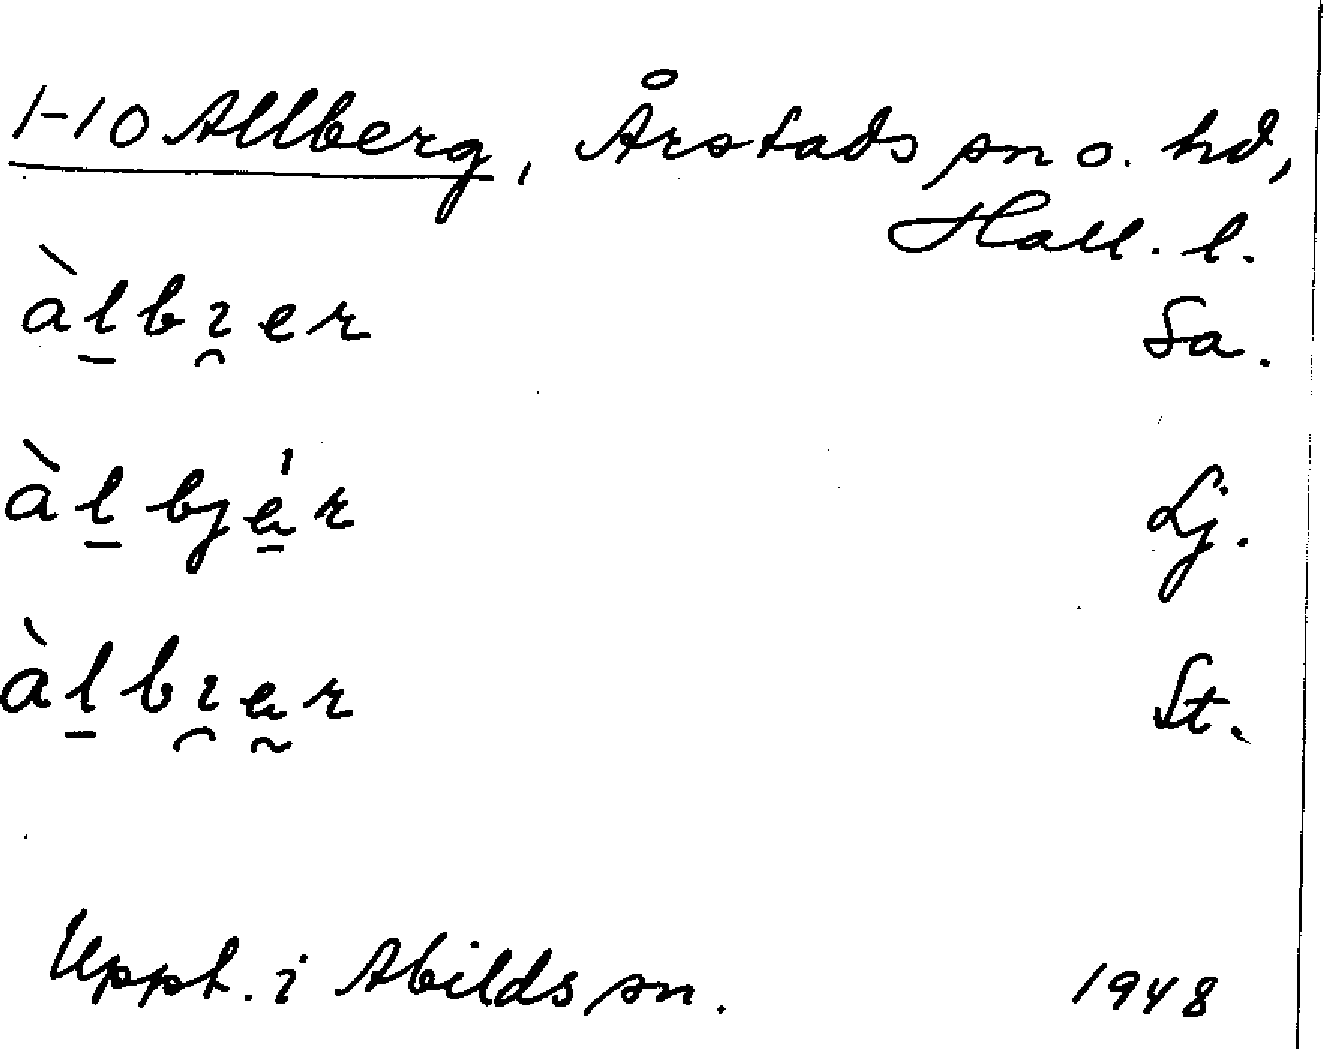 1-10 Allberg, Årstads sn o. hd,
Hall. l.
àl̲bı̯er Sa.
àl̲bja̲̍r Lj.
àl̲bı̯a̰r St.
Uppt. i Abilds sn. 1948